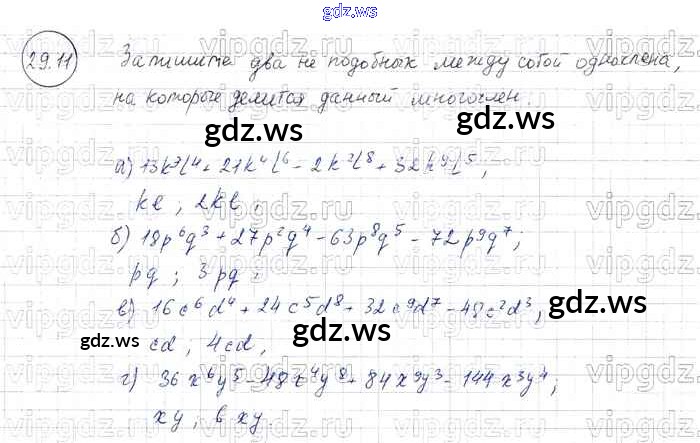 gdz.ws
29.11 Запишите два не подобных между собой одночлена,
на которые делится данный многочлен.
gdz.ws
а) 13k³l⁴ + 21k⁴l⁶ - 2k²l⁸ + 32k⁹l⁵;
kl; 2kl;
б) 18p⁶q³ + 27p²q⁴ - 63p⁸q⁵ - 72p⁹q⁷;
pq; 3pq;
gdz.ws
в) 16c⁶d⁴ + 24c⁵d⁸ + 32c⁹d⁷ - 48c²d³;
gdz.ws gdz.ws
cd; 4cd;
г) 36x⁶y⁵ - 48x⁴y⁸ + 84x⁹y³ - 144x³y⁴;
xy; 6xy.
gdz.ws